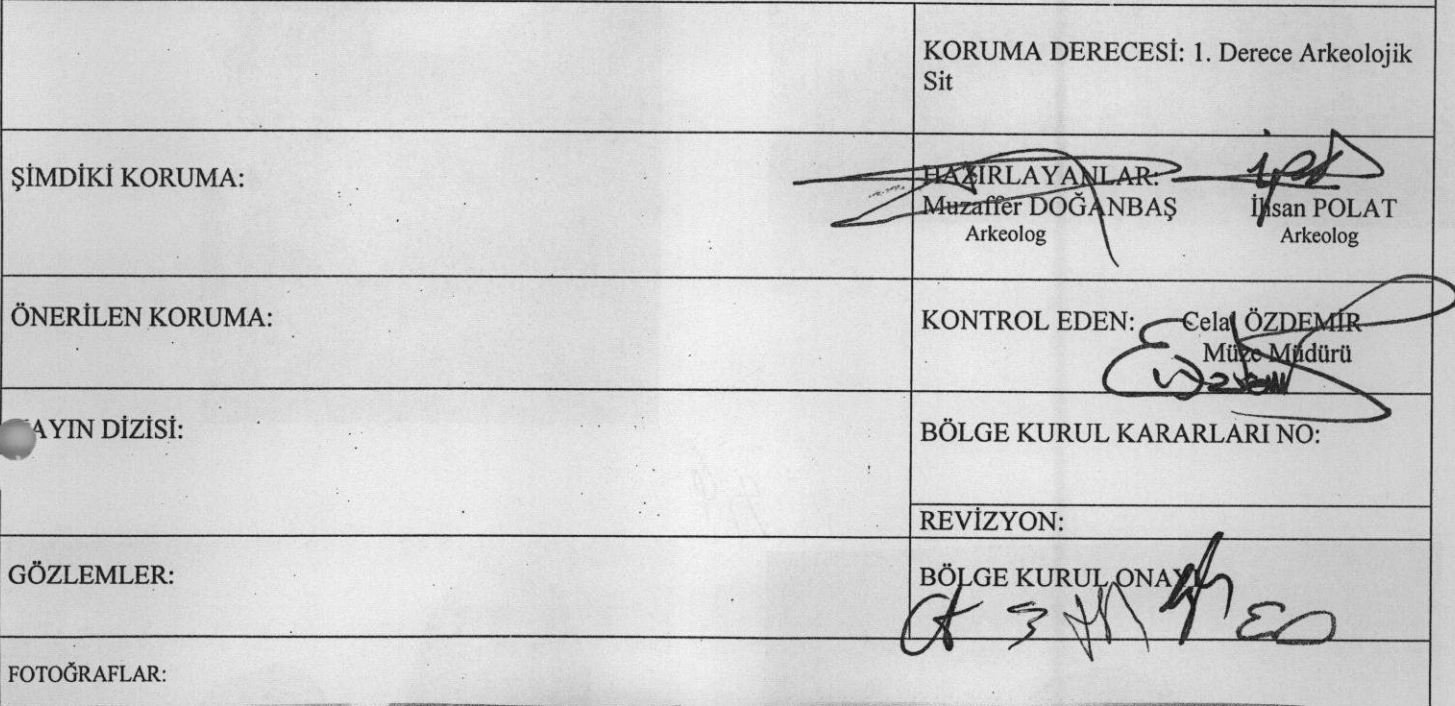 KORUMA DERECESİ: 1. Derece Arkeolojik
Sit
ŞİMDİKİ KORUMA:
HAZIRLAYANLAR:
Muzaffer DOĞANBAŞ İhsan POLAT
Arkeolog Arkeolog
ÖNERİLEN KORUMA:
KONTROL EDEN: Celal ÖZDEMİR
Müze Müdürü
YAYIN DİZİSİ:
BÖLGE KURUL KARARLARI NO:
REVİZYON:
GÖZLEMLER:
BÖLGE KURUL ONAYI:
FOTOĞRAFLAR: